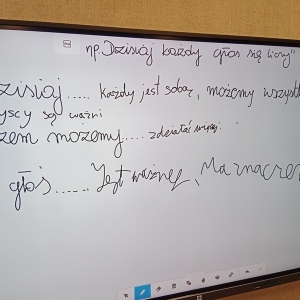 np. "Dzisiaj każdy głos się liczy"
zisiaj..... każdy jest sobą, możemy wszystk
yscy są ważni
zem możemy..... zdziałać więcej.
głos...... Jest ważnej, Ma znaczen